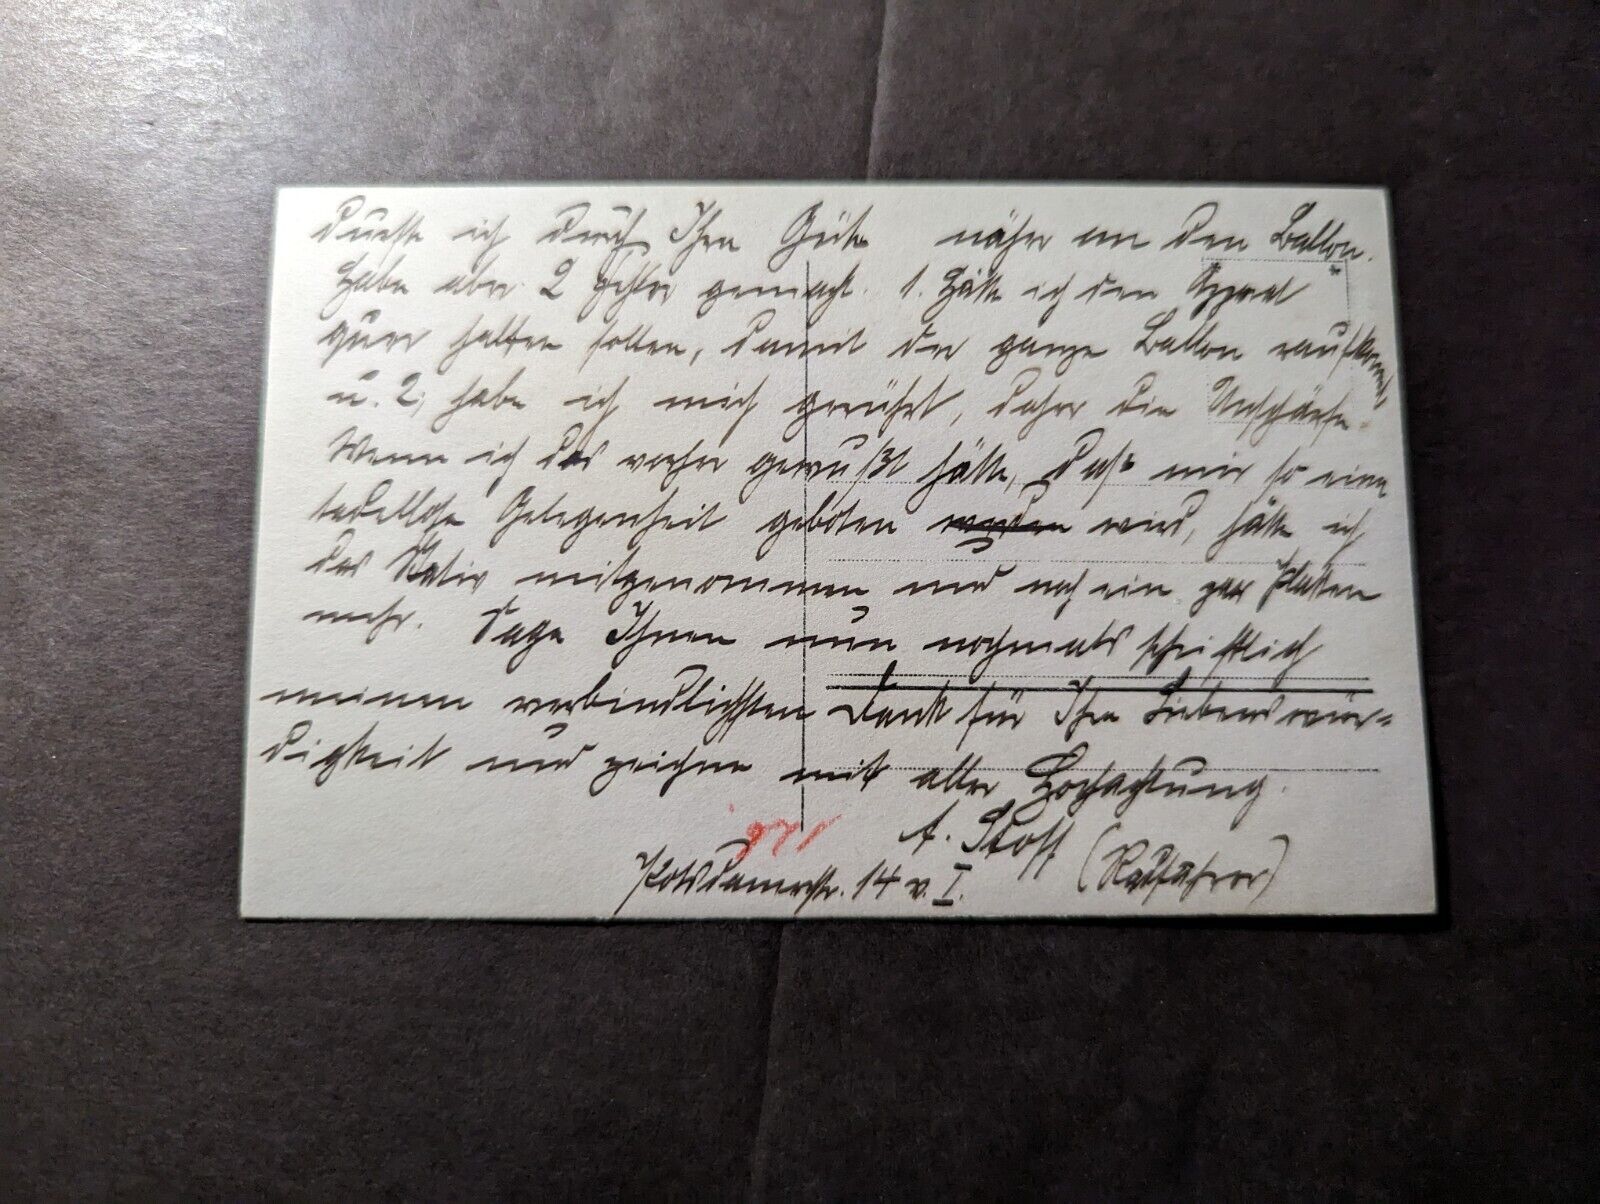 Durfte ich durch Ihre Güte näher an den Ballon.
Habe aber 2 Fehler gemacht. 1. Hätte ich den Apparat
quer halten sollen, damit der ganze Ballon raufkommt
u. 2, habe ich mich gerührt, daher die Unschärfe.
Wenn ich das vorher gewußt hätte, daß mir so eine
tadellose Gelegenheit geboten wird, hätte ich
das Stativ mitgenommen und noch ein paar Platten
mehr. Sage Ihnen nun nochmals schriftlich
meinen verbindlichsten Dank für Ihre Liebenswür=
digkeit und zeichne mit aller Hochachtung.
A. Stoff
(Radfahrer)
Potsdamerstr. 14 v. I.